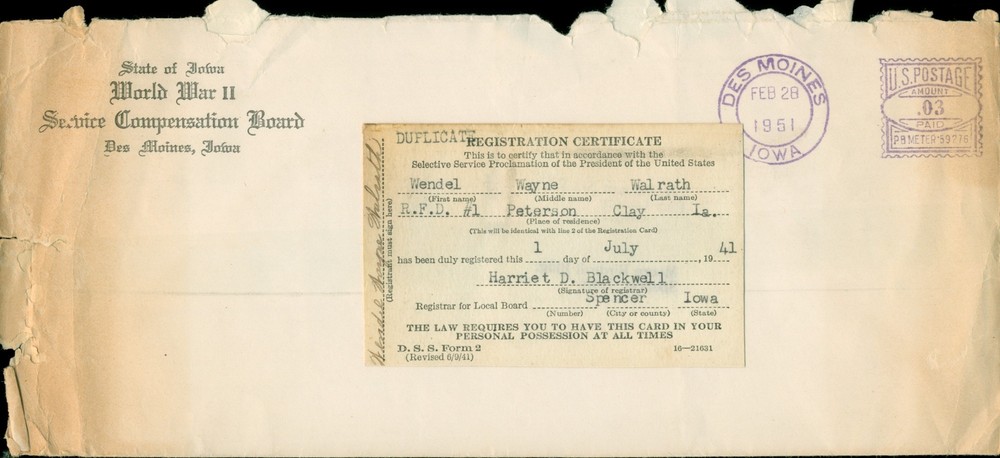 State of Iowa
World War II
Service Compensation Board
Des Moines, Iowa
DES MOINES
FEB 28
1951
IOWA
U.S. POSTAGE
AMOUNT
.03
PAID
PB METER 59776
DUPLICATE
REGISTRATION CERTIFICATE
This is to certify that in accordance with the
Selective Service Proclamation of the President of the United States
Wendel Wayne Walrath
(First name) (Middle name) (Last name)
R.F.D. #1 Peterson Clay Ia.
(Place of residence)
(This will be identical with line 2 of the Registration Card)
1 July 41
has been duly registered this day of , 19
Harriet D. Blackwell
(Signature of registrar)
Spencer Iowa
Registrar for Local Board
(Number) (City or county) (State)
THE LAW REQUIRES YOU TO HAVE THIS CARD IN YOUR
PERSONAL POSSESSION AT ALL TIMES
D. S. S. Form 2
(Revised 6/9/41)
16—21631
Wendel Wayne Walrath
(Registrant must sign here)